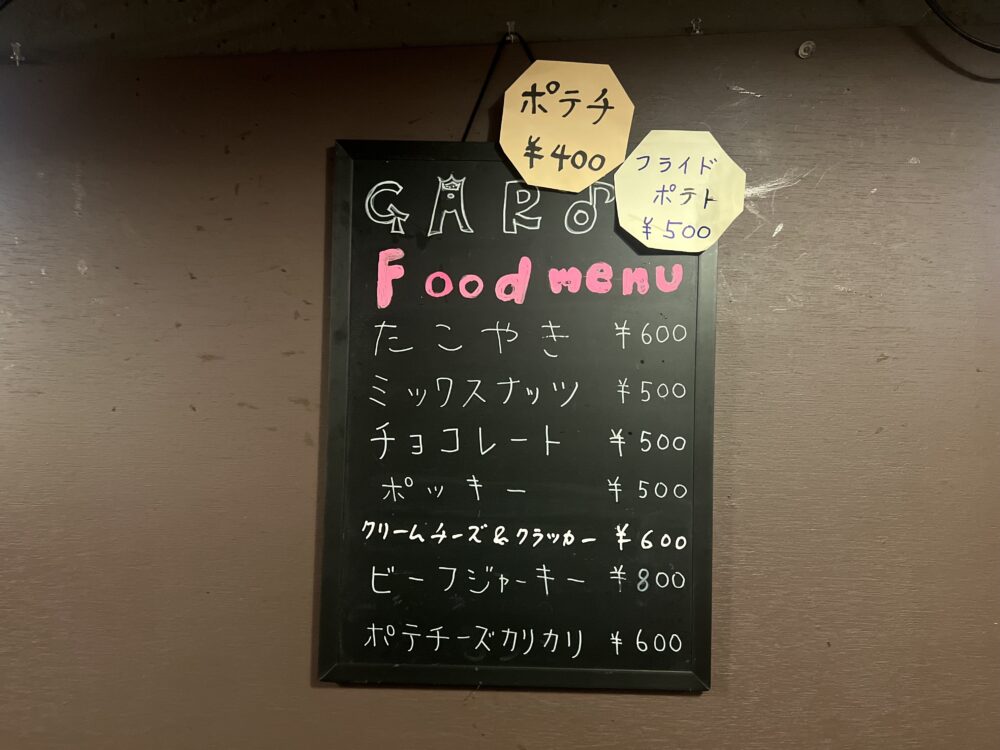 ポテチ
¥400
フライド
ポテト
¥500
GAR
Food menu
たこやき ¥600
ミックスナッツ ¥500
チョコレート ¥500
ポッキー ¥500
クリームチーズ&クラッカー ¥600
ビーフジャーキー ¥800
ポテチーズカリカリ ¥600